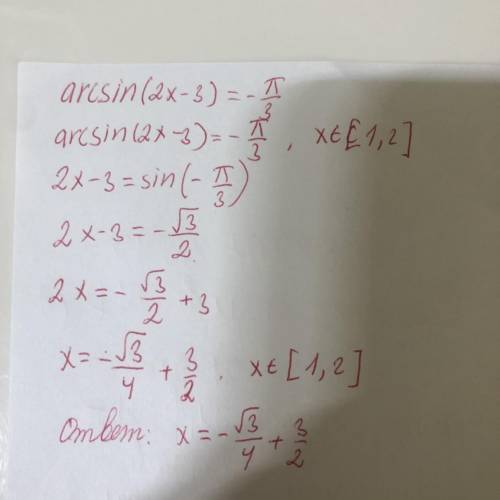 arcsin(2x-3)=-π/3
arcsin(2x-3)=-π/3, x∈[1,2]
2x-3=sin(-π/3)
2x-3=-√3/2
2x=-√3/2+3
x=-√3/4+3/2, x∈[1,2]
Ответ: x=-√3/4+3/2